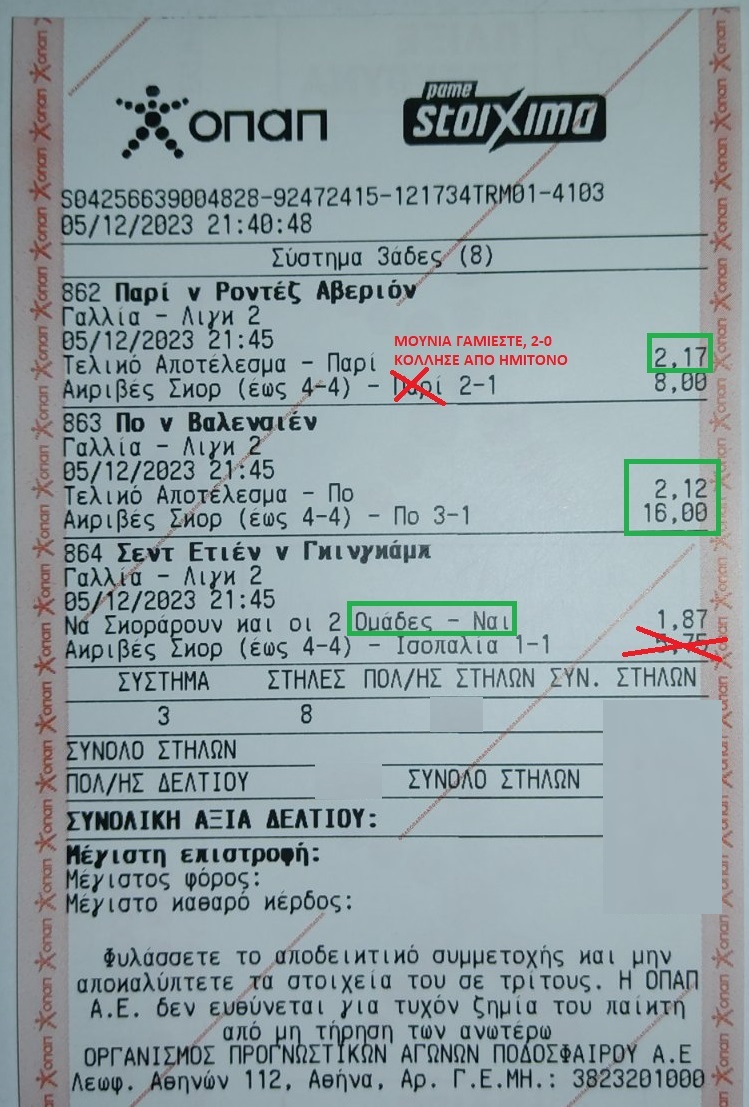 οπαπ
pame
stoixima
S04256639004828-92472415-121734TRM01-4103
05/12/2023 21:40:48
Σύστημα 3άδες (8)
862 Παρί v Ροντέζ Αβεριόν
Γαλλία - Λιγκ 2
05/12/2023 21:45
ΜΟΥΝΙΑ ΓΑΜΙΕΣΤΕ, 2-0
Τελικό Αποτέλεσμα - Παρί 2,17
ΚΟΛΛΗΣΕ ΑΠΟ ΗΜΙΤΟΝΟ
Ακριβές Σκορ (έως 4-4) - Παρί 2-1 8,00
863 Πο v Βαλενσιέν
Γαλλία - Λιγκ 2
05/12/2023 21:45
Τελικό Αποτέλεσμα - Πο 2,12
Ακριβές Σκορ (έως 4-4) - Πο 3-1 16,00
864 Σεντ Ετιέν v Γκινγκάμπ
Γαλλία - Λιγκ 2
05/12/2023 21:45
Νά Σκοράρουν και οι 2 Ομάδες - Ναι 1,87
Ακριβές Σκορ (έως 4-4) - Ισοπαλία 1-1 5,75
ΣΥΣΤΗΜΑ ΣΤΗΛΕΣ ΠΟΛ/ΗΣ ΣΤΗΛΩΝ ΣΥΝ. ΣΤΗΛΩΝ
3 8
ΣΥΝΟΛΟ ΣΤΗΛΩΝ
ΠΟΛ/ΗΣ ΔΕΛΤΙΟΥ ΣΥΝΟΛΟ ΣΤΗΛΩΝ
ΣΥΝΟΛΙΚΗ ΑΞΙΑ ΔΕΛΤΙΟΥ:
Μέγιστη επιστροφή:
Μέγιστος φόρος:
Μέγιστο καθαρό κέρδος:
Φυλάσσετε το αποδεικτικό συμμετοχής και μην
αποκαλύπτετε τα στοιχεία του σε τρίτους. Η ΟΠΑΠ
Α.Ε. δεν ευθύνεται για τυχόν ζημία του παίκτη
από μη τήρηση των ανωτέρω
ΟΡΓΑΝΙΣΜΟΣ ΠΡΟΓΝΩΣΤΙΚΩΝ ΑΓΩΝΩΝ ΠΟΔΟΣΦΑΙΡΟΥ Α.Ε
Λεωφ. Αθηνών 112, Αθήνα, Αρ. Γ.Ε.ΜΗ.: 3823201000